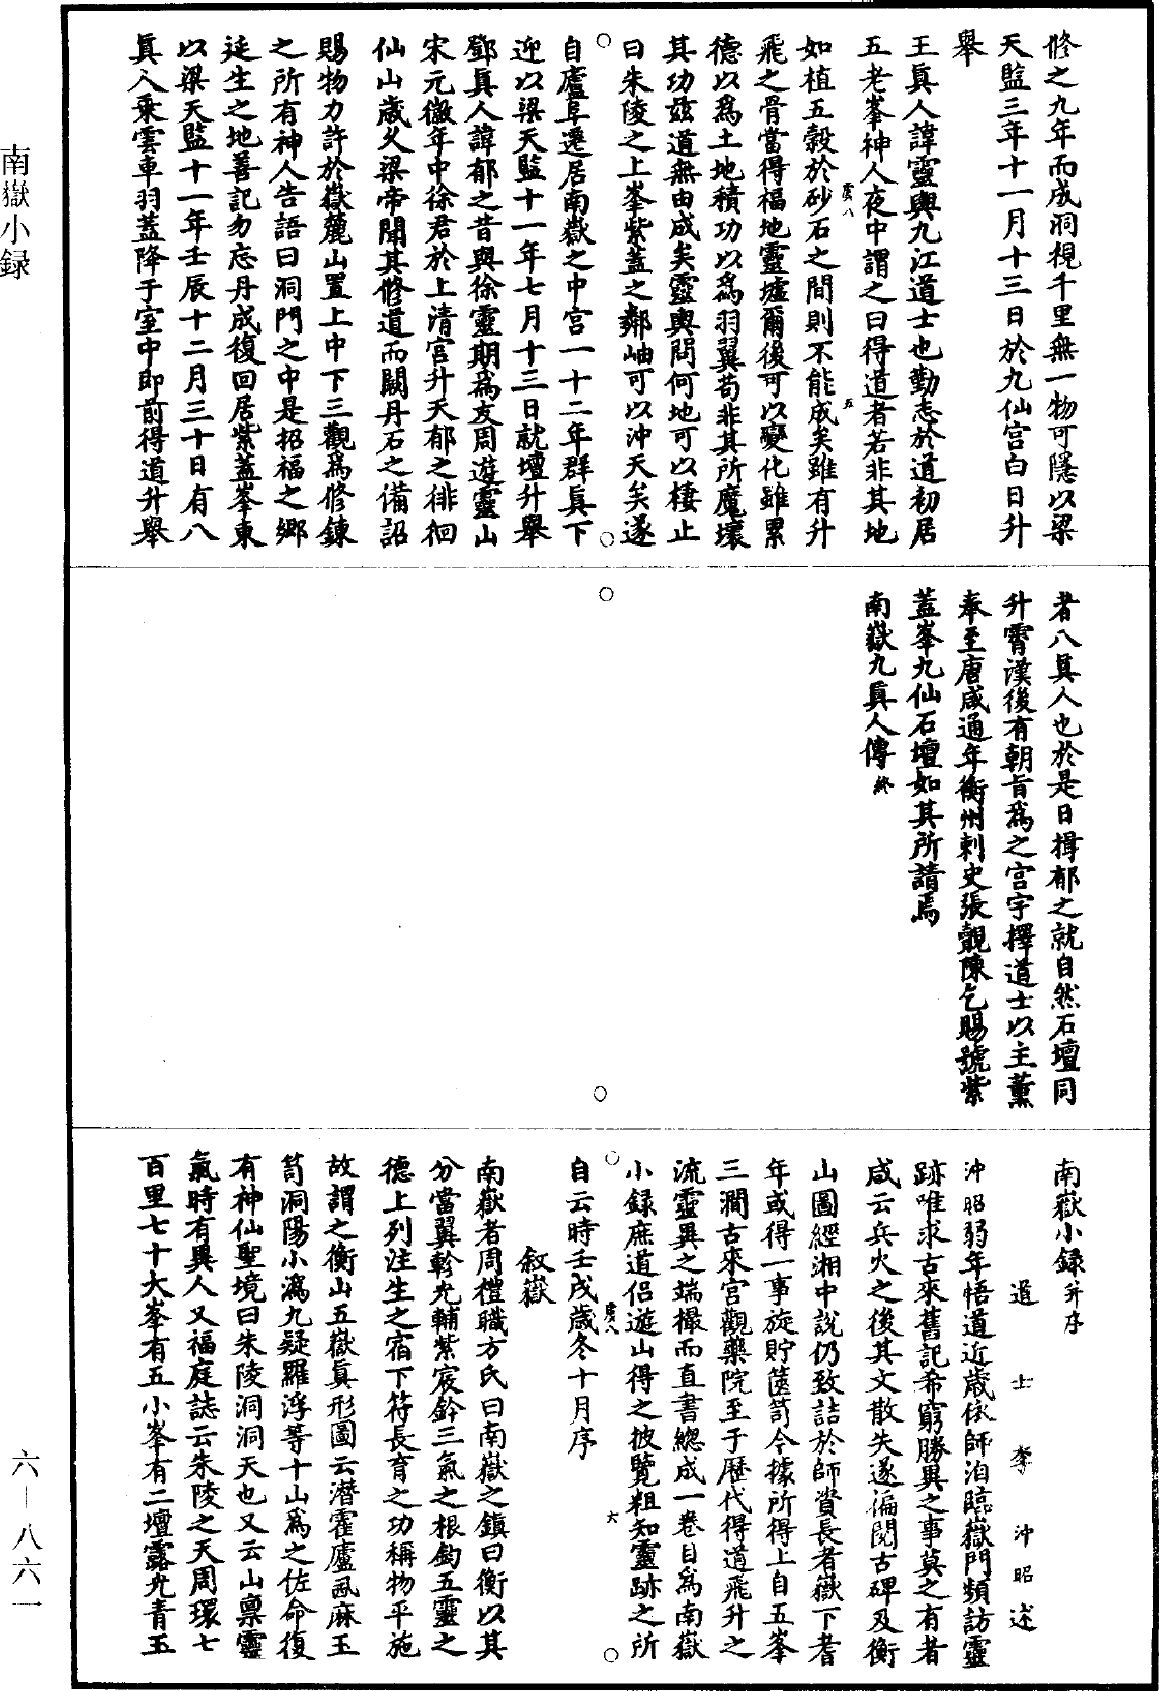 修之九年而成洞視千里無一物可隱以梁
天監三年十一月十三日於九仙宮白日升
舉
王眞人諱靈輿九江道士也勤志於道初居
五老峯神人夜中謂之曰得道者若非其地
如植五穀於砂石之間則不能成矣雖有升
飛之骨當得福地靈墟爾後可以變化雖累
德以爲土地積功以爲羽翼苟非其所魔壞
其功兹道無由成矣靈輿問何地可以棲止
曰朱陵之上峯紫蓋之鄰岫可以沖天矣遂
自廬阜遷居南嶽之中宮一十二年群眞下
迎以梁天監十一年七月十三日就壇升舉
鄧眞人諱郁之昔與徐靈期爲友周遊靈山
宋元徽年中徐君於上清宮升天郁之徘徊
仙山歲久梁帝聞其修道而闕丹石之備詔
賜物力許於嶽麓山置上中下三觀爲修鍊
之所有神人告語曰洞門之中是招福之鄉
延生之地善記勿忘丹成復回居紫蓋峯東
以梁天監十一年壬辰十二月三十日有八
眞人乘雲車羽蓋降于室中即前得道升舉
者八眞人也於是日揖郁之就自然石壇同
升霄漢後有朝旨爲之宮宇擇道士以主薰
奉至唐咸通年衡州刺史張觀陳乞賜號紫
蓋峯九仙石壇如其所請焉
南嶽九眞人傳終
南嶽小録并序
道士李沖昭述
沖昭弱年悟道近歲依師洎臨嶽門頻訪靈
跡唯求古來舊記希窮勝異之事莫之有者
咸云兵火之後其文散失遂徧閱古碑及衡
山圖經湘中說仍致詰於師資長者嶽下耆
年或得一事旋貯篋笥今據所得上自五峯
三澗古來宮觀藥院至于歷代得道飛升之
流靈異之端撮而直書總成一卷目爲南嶽
小録庶道侶遊山得之披覽粗知靈跡之所
自云時壬戌歲冬十月序
叙嶽
南嶽者周禮職方氏曰南嶽之鎮曰衡以其
分當翼軫光輔紫宸鈐三氣之根鈞五靈之
德上列注生之宿下符長育之功稱物平施
故謂之衡山五嶽眞形圖云潛霍廬風麻玉
笥洞陽小潙九疑羅浮等十山爲之佐命復
有神仙聖境曰朱陵洞洞天也又云山禀靈
氣時有異人又福庭誌云朱陵之天周環七
百里七十大峯有五小峯有二壇露光青玉
南嶽小録
六—八六一